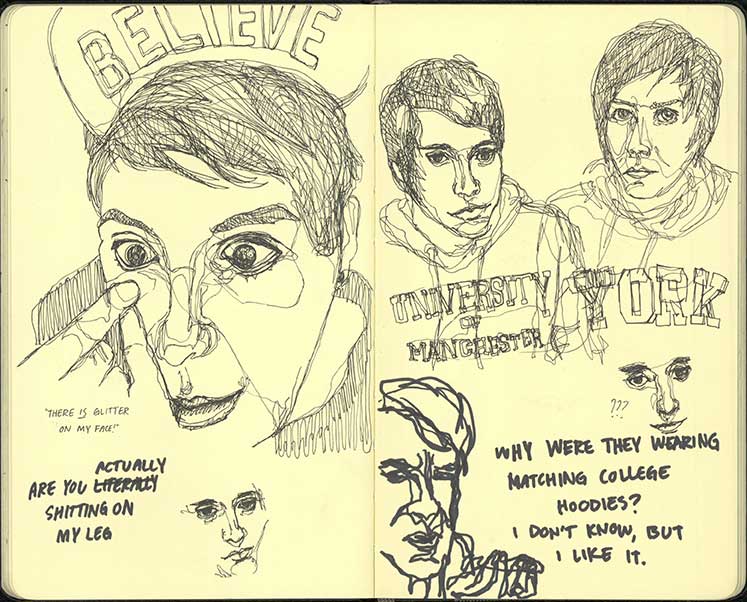 BELIEVE
"THERE IS GLITTER
ON MY FACE!"
ACTUALLY
ARE YOU LITERALLY
SHITTING ON
MY LEG
UNIVERSITY
OF
MANCHESTER
YORK
???
WHY WERE THEY WEARING
MATCHING COLLEGE
HOODIES?
I DON'T KNOW, BUT
I LIKE IT.